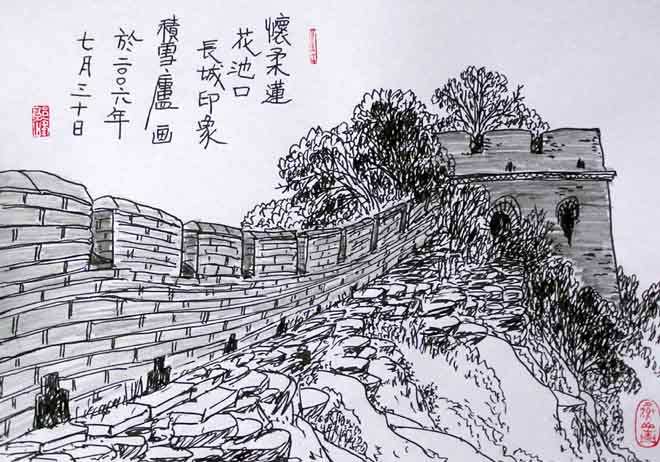 懷柔蓮
花池口
長城印象
積雪廬画
於二〇〇六年
七月三十日